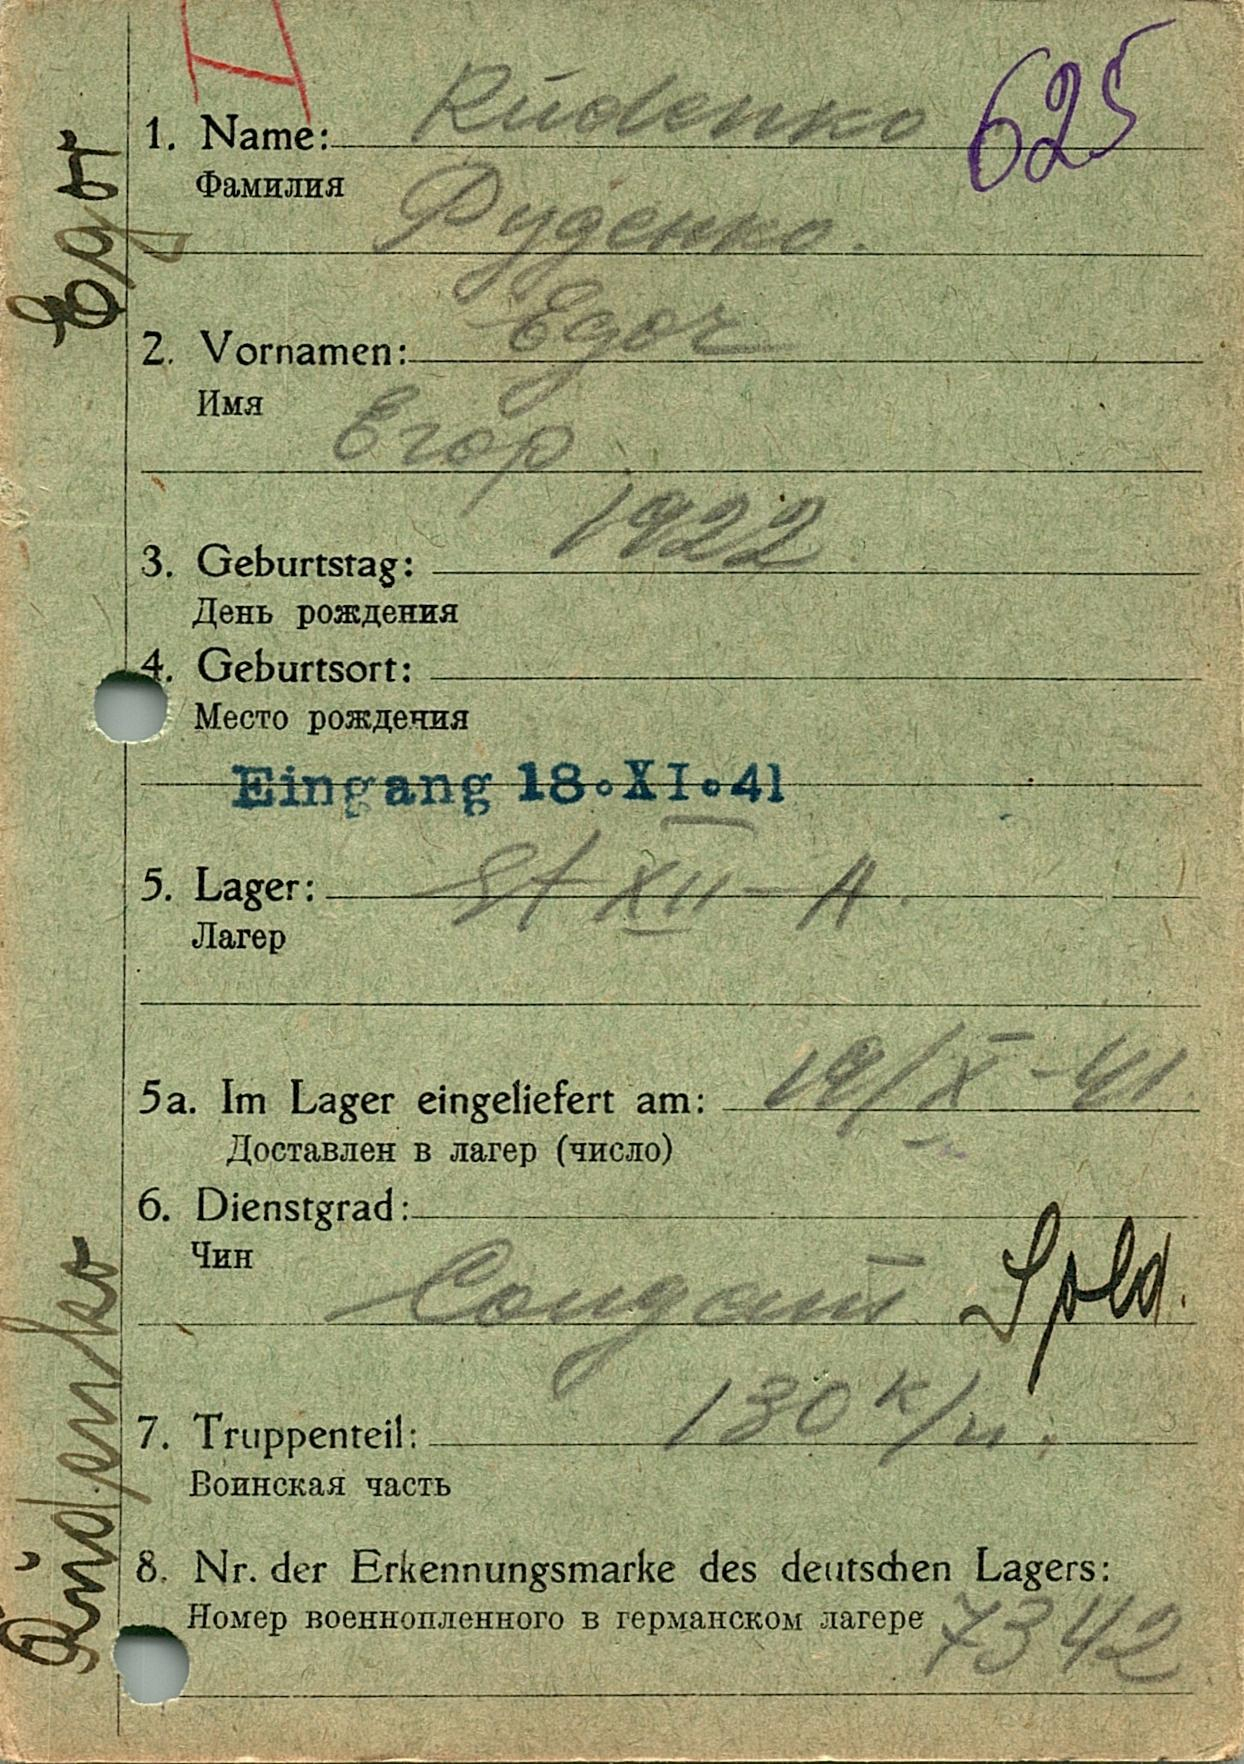 625
1. Name: Rudenko
Фамилия
Руденко.
2. Vornamen: Egor
Имя
Егор
3. Geburtstag: 1922
День рождения
4. Geburtsort:
Место рождения
Eingang 18.XI.41
5. Lager: St XII-A.
Лагер
5a. Im Lager eingeliefert am: 19/X-41
Доставлен в лагер (число)
6. Dienstgrad:
Чин
Солдат Sold.
7. Truppenteil: 130 к/п.
Воинская часть
8. Nr. der Erkennungsmarke des deutschen Lagers:
Номер военнопленного в германском лагере 7342
Rŭdenko Egor